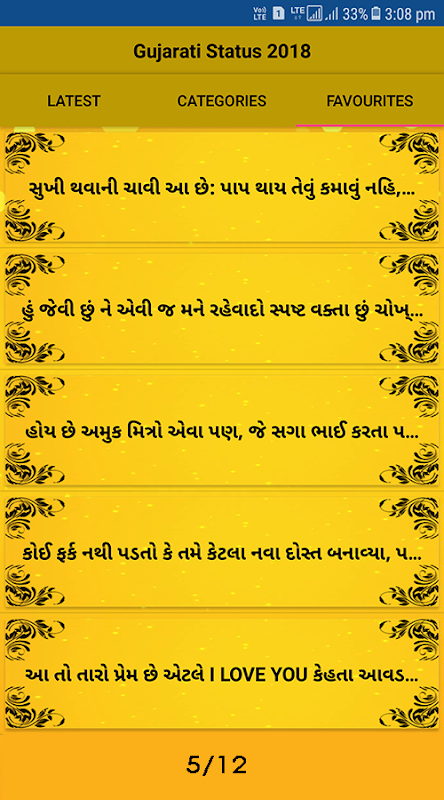 VoLTE 1 LTE 33% 3:08 pm
Gujarati Status 2018
LATEST CATEGORIES FAVOURITES
સુખી થવાની ચાવી આ છે: પાપ થાય તેવું કમાવું નહિ,...
હું જેવી છું ને એવી જ મને રહેવાદો સ્પષ્ટ વક્તા છું ચોખ્...
હોય છે અમુક મિત્રો એવા પણ, જે સગા ભાઈ કરતા પ...
કોઈ ફર્ક નથી પડતો કે તમે કેટલા નવા દોસ્ત બનાવ્યા, પ...
આ તો તારો પ્રેમ છે એટલે I LOVE YOU કેહતા આવડ...
5/12